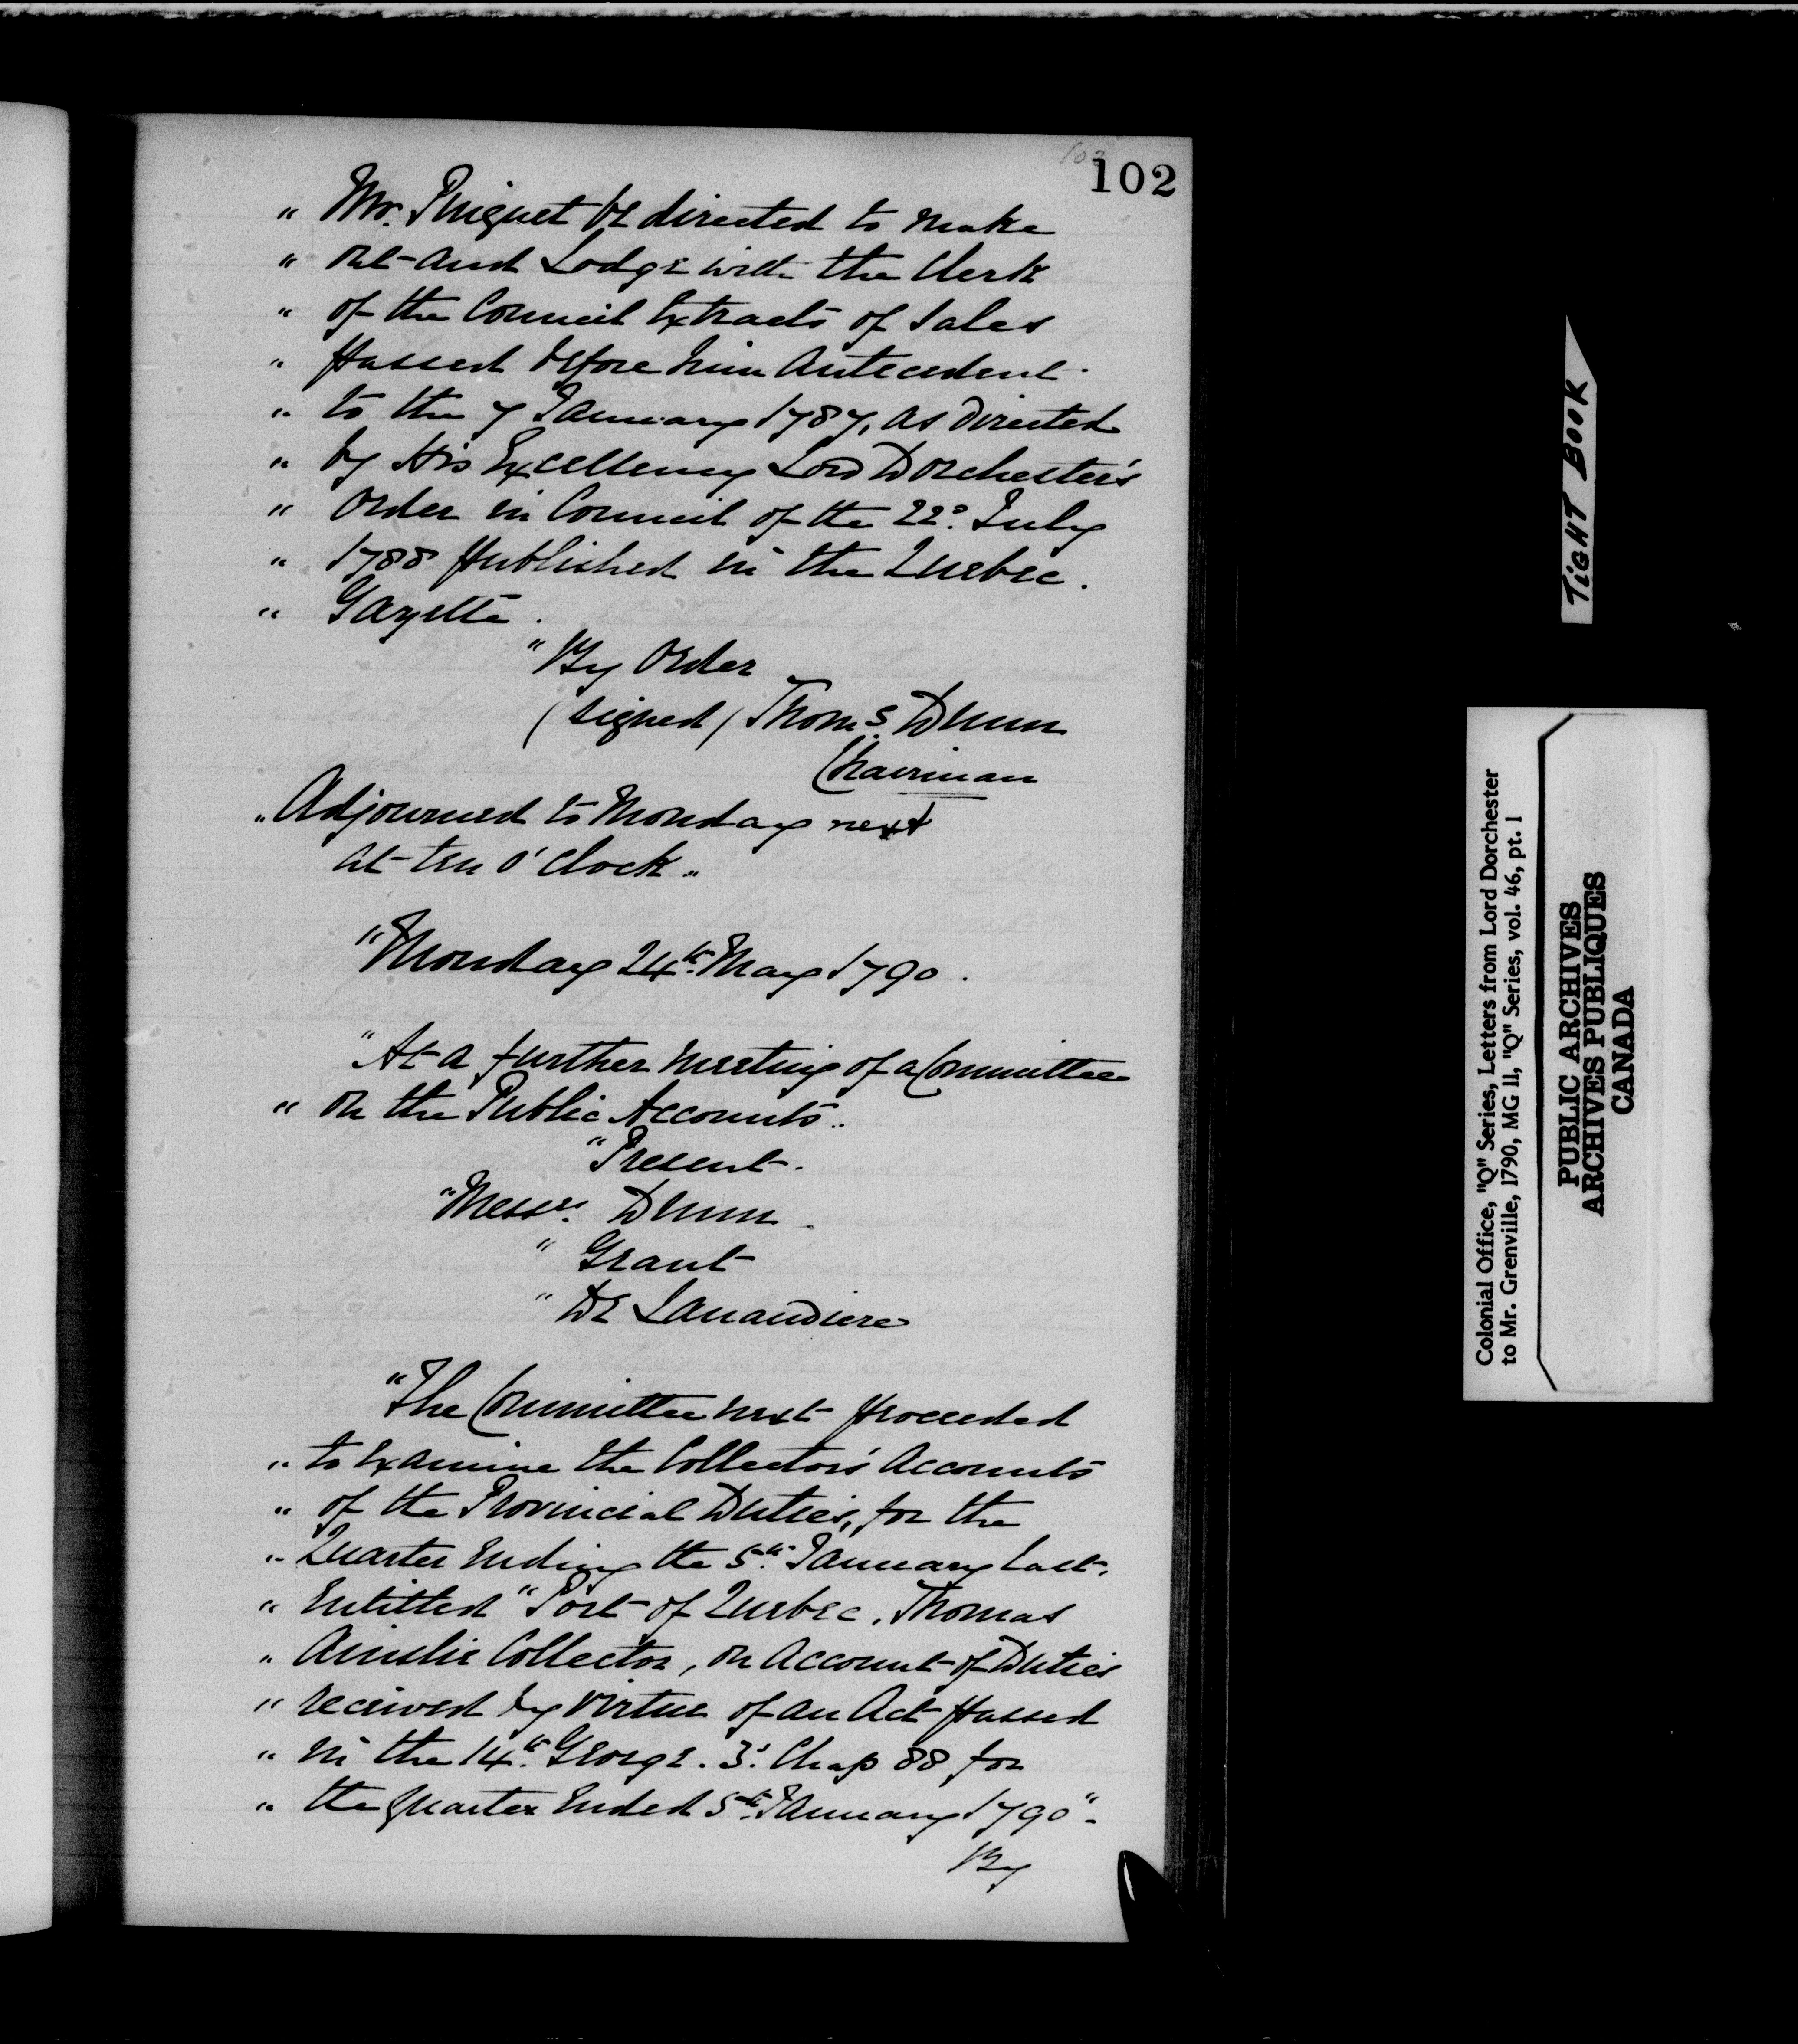 102
" Mr. Pinguet be directed to make
" out and Lodge with the Clerk
" of the Council Extracts of Sales
" passed before him Antecedent
" to the 7 January 1787, as directed
" by His Excellency Lord Dorchester's
" Order in Council of the 22d. July
" 1788 published in the Quebec
" Gazette.
" By Order
(signed) Thoms. Dunn
Chairman
" Adjourned to Monday next
at ten o'Clock "
" Monday 24th. May 1790.
" At a further meeting of a Committee
" on the Public Accounts.
" Present.
" Messrs. Dunn
" Grant
" De Lanaudiere
" The Committee next proceeded
" to Examine the Collector's Accounts
" of the Provincial Duties, for the
" Quarter Ending the 5th. January last.
" Entitled "Port of Quebec, Thomas
" Ainslie Collector, on Account of Duties
" received by Virtue of an Act passed
" in the 14th. George. 3d. Chap 88 for
" the Quarter Ended 5th. January 1790"-
By
TIGHT BOOK
Colonial Office, "Q" Series, Letters from Lord Dorchester
to Mr. Grenville, 1790, MG 11, "Q" Series, vol. 46, pt. 1
PUBLIC ARCHIVES
ARCHIVES PUBLIQUES
CANADA